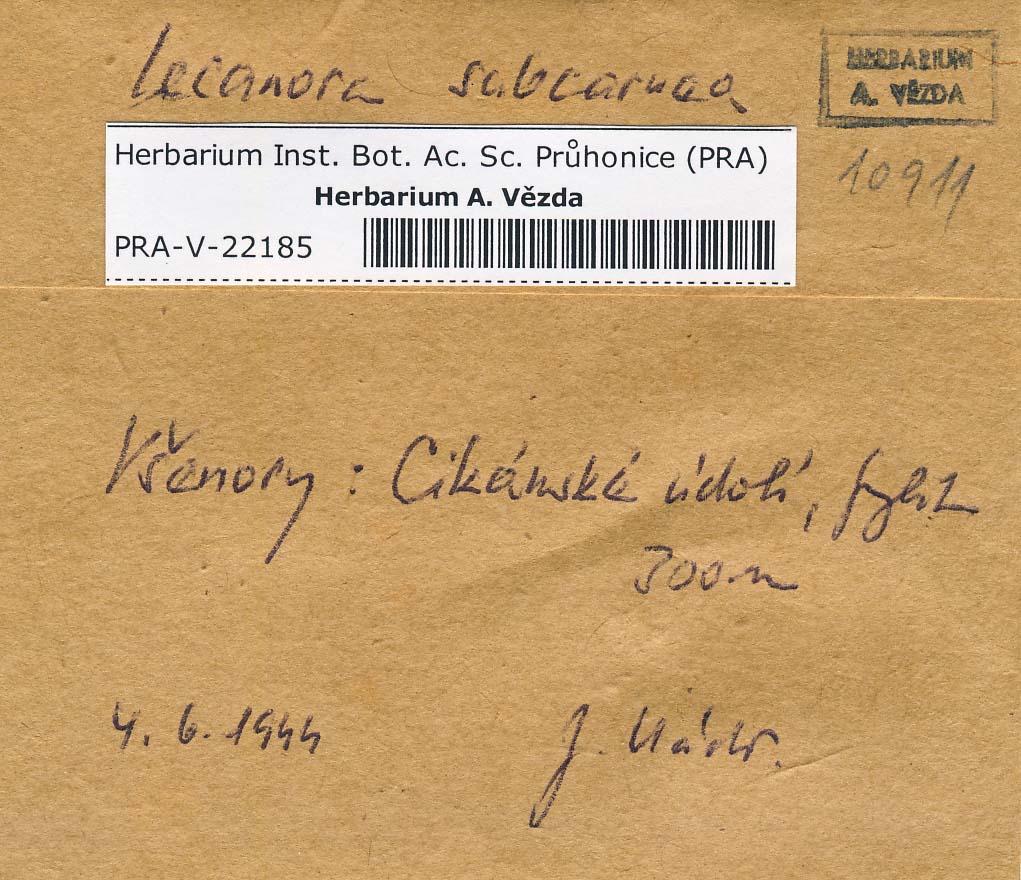 Lecanora subcarnea
HERBARIUM
A. VĚZDA
10911
Herbarium Inst. Bot. Ac. Sc. Průhonice (PRA)
Herbarium A. Vězda
PRA-V-22185
Všenory: Cikánské údolí,
300m
4. 6. 1944
J.